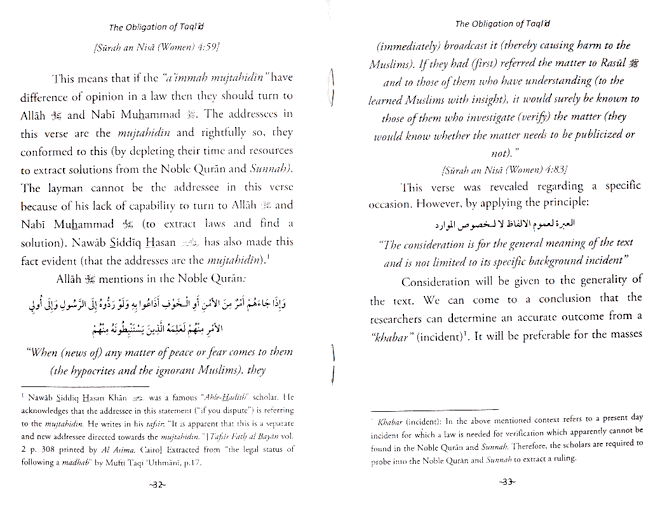 The Obligation of Taqlīd
[Sūrah an Nisā (Women) 4:59]
This means that if the "a'immah mujtahidin" have
difference of opinion in a law then they should turn to
Allāh ﷻ and Nabī Muḥammad ﷺ. The addressees in
this verse are the mujtahidin and rightfully so, they
conformed to this (by depleting their time and resources
to extract solutions from the Noble Qurān and Sunnah).
The layman cannot be the addressee in this verse
because of his lack of capability to turn to Allāh ﷻ and
Nabī Muḥammad ﷺ (to extract laws and find a
solution). Nawāb Ṣiddīq Ḥasan has also made this
fact evident (that the addresses are the mujtahidin).¹
Allāh ﷻ mentions in the Noble Qurān:
وَإِذَا جَاءَهُمْ أَمْرٌ مِنَ الأَمْنِ أَوِ الْخَوْفِ أَذَاعُوا بِهِ وَلَوْ رَدُّوهُ إِلَى الرَّسُولِ وَإِلَى أُولِي
الأَمْرِ مِنْهُمْ لَعَلِمَهُ الَّذِينَ يَسْتَنْبِطُونَهُ مِنْهُمْ
"When (news of) any matter of peace or fear comes to them
(the hypocrites and the ignorant Muslims), they
¹ Nawāb Ṣiddīq Ḥasan Khān was a famous "Ahle-Ḥadīth" scholar. He
acknowledges that the addressee in this statement ("if you dispute") is referring
to the mujtahidin. He writes in his tafsir: "It is apparent that this is a separate
and new addressee directed towards the mujtahidin." [Tafsir Fatḥ al Bayān vol.
2 p. 308 printed by Al Asima, Cairo] Extracted from "the legal status of
following a madhab" by Mufti Taqi 'Uthmānī, p.17.
-32-
The Obligation of Taqlīd
(immediately) broadcast it (thereby causing harm to the
Muslims). If they had (first) referred the matter to Rasūl ﷺ
and to those of them who have understanding (to the
learned Muslims with insight), it would surely be known to
those of them who investigate (verify) the matter (they
would know whether the matter needs to be publicized or
not)."
[Sūrah an Nisā (Women) 4:83]
This verse was revealed regarding a specific
occasion. However, by applying the principle:
العبرة لعموم الالفاظ لا لخصوص الموارد
"The consideration is for the general meaning of the text
and is not limited to its specific background incident"
Consideration will be given to the generality of
the text. We can come to a conclusion that the
researchers can determine an accurate outcome from a
"khabar" (incident)¹. It will be preferable for the masses
¹ Khabar (incident): In the above mentioned context refers to a present day
incident for which a law is needed for verification which apparently cannot be
found in the Noble Qurān and Sunnah. Therefore, the scholars are required to
probe into the Noble Qurān and Sunnah to extract a ruling.
-33-